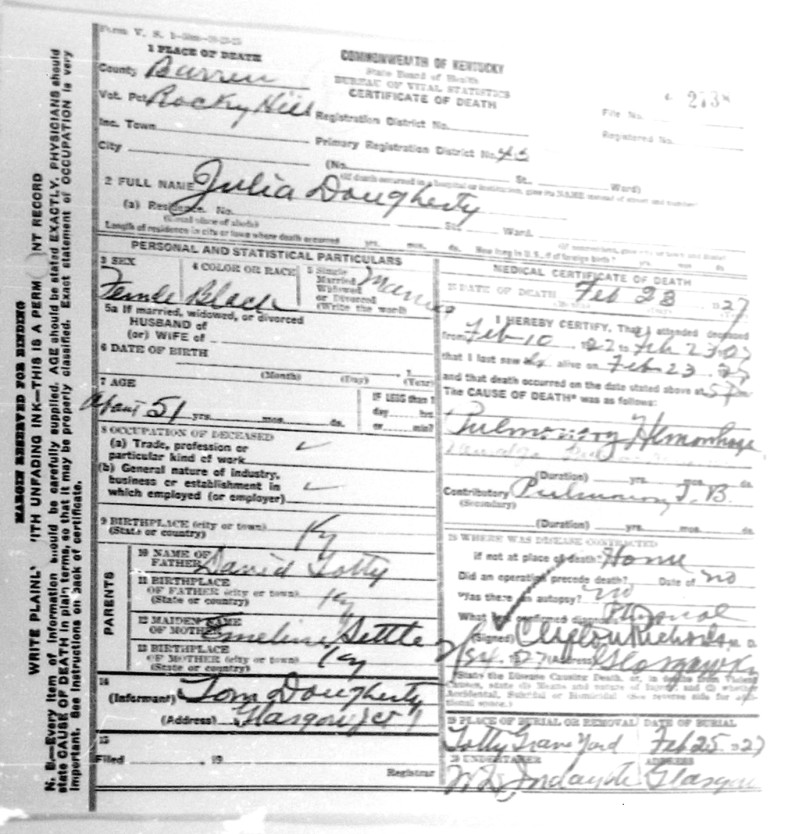 Form V. S.
1 PLACE OF DEATH
County Barren
Vot. Pct Rocky Hill
Inc. Town
City
COMMONWEALTH OF KENTUCKY
State Board of Health
BUREAU OF VITAL STATISTICS
CERTIFICATE OF DEATH
Registration District No.
Primary Registration District No. 45
File No. 2738
Registered No.
(No. St., Ward)
(If death occurred in a hospital or institution, give its NAME instead of street and number)
2 FULL NAME Julia Dougherty
(a) Residence. No. St., Ward.
(Usual place of abode)
Length of residence in city or town where death occurred yrs. mos. ds. How long in U. S., if of foreign birth? yrs. mos. ds.
PERSONAL AND STATISTICAL PARTICULARS
3 SEX
4 COLOR OR RACE
5 Single
Married
Widowed
or Divorced
(Write the word)
Femle Black
5a If married, widowed, or divorced
HUSBAND of
(or) WIFE of
6 DATE OF BIRTH
(Month) (Day) (Year)
7 AGE
about 51 yrs. mos. ds.
IF LESS than 1
day hrs.
or min?
8 OCCUPATION OF DECEASED
(a) Trade, profession or
particular kind of work
(b) General nature of industry,
business or establishment in
which employed (or employer)
9 BIRTHPLACE (city or town)
(State or country) Ky
PARENTS
10 NAME OF
FATHER David Totty
11 BIRTHPLACE
OF FATHER (city or town)
(State or country) Ky
12 MAIDEN NAME
OF MOTHER Emeline Settle
13 BIRTHPLACE
OF MOTHER (city or town)
(State or country) Ky
14
(Informant) Tom Dougherty
(Address) Glasgow Jct
15
Filed , 19
Registrar
MEDICAL CERTIFICATE OF DEATH
DATE OF DEATH Feb 23 1927
I HEREBY CERTIFY, That I attended deceased
from Feb-10 1927 to Feb 23 27
that I last saw alive on Feb 23 27
and that death occurred on the date stated above at
The CAUSE OF DEATH* was as follows:
Pulmonary Hemorrhage
(Duration) yrs. mos. ds.
Contributory Pulmonary T. B.
(Secondary)
(Duration) yrs. mos. ds.
18 WHERE WAS DISEASE CONTRACTED
if not at place of death? Home
Did an operation precede death? no Date of
Was there an autopsy? no
What test confirmed diagnosis?
(Signed) Clifton Richards M. D.
27 (Address) Glasgow Ky
19 PLACE OF BURIAL OR REMOVAL DATE OF BURIAL
Totty Grave Yard Feb 25 1927
20 UNDERTAKER ADDRESS
Glasgow
MARGIN RESERVED FOR BINDING
WRITE PLAINL 'ITH UNFADING INK—THIS IS A PERM NT RECORD
N. B.—Every item of information should be carefully supplied. AGE should be stated EXACTLY. PHYSICIANS should
state CAUSE OF DEATH in plain terms, so that it may be properly classified. Exact statement of OCCUPATION is very
important. See instructions on back of certificate.